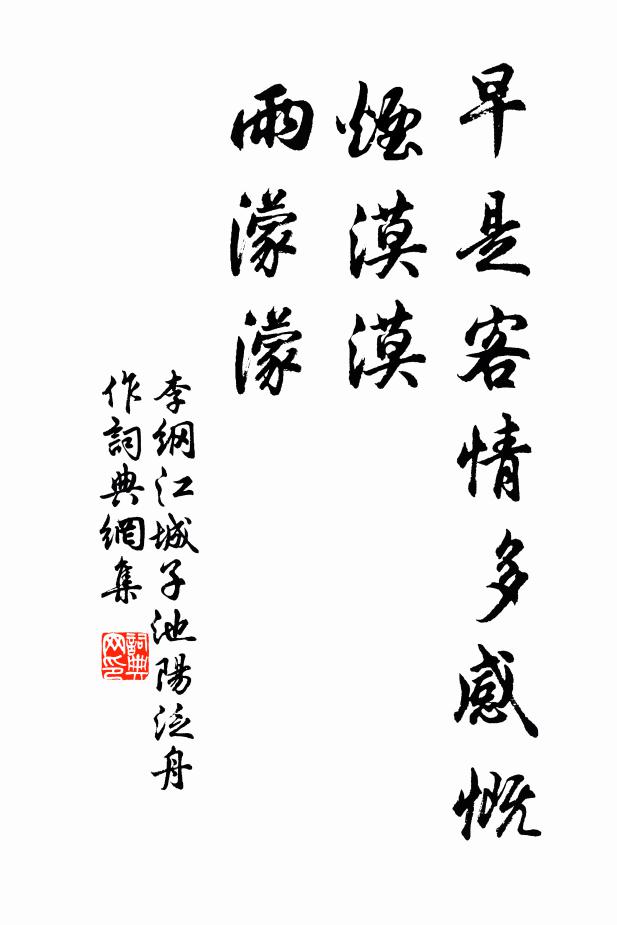 早是客情多感慨
煙漠漠
雨濛濛
李綱江城子池陽泛舟
作詞典網集
詞典網印